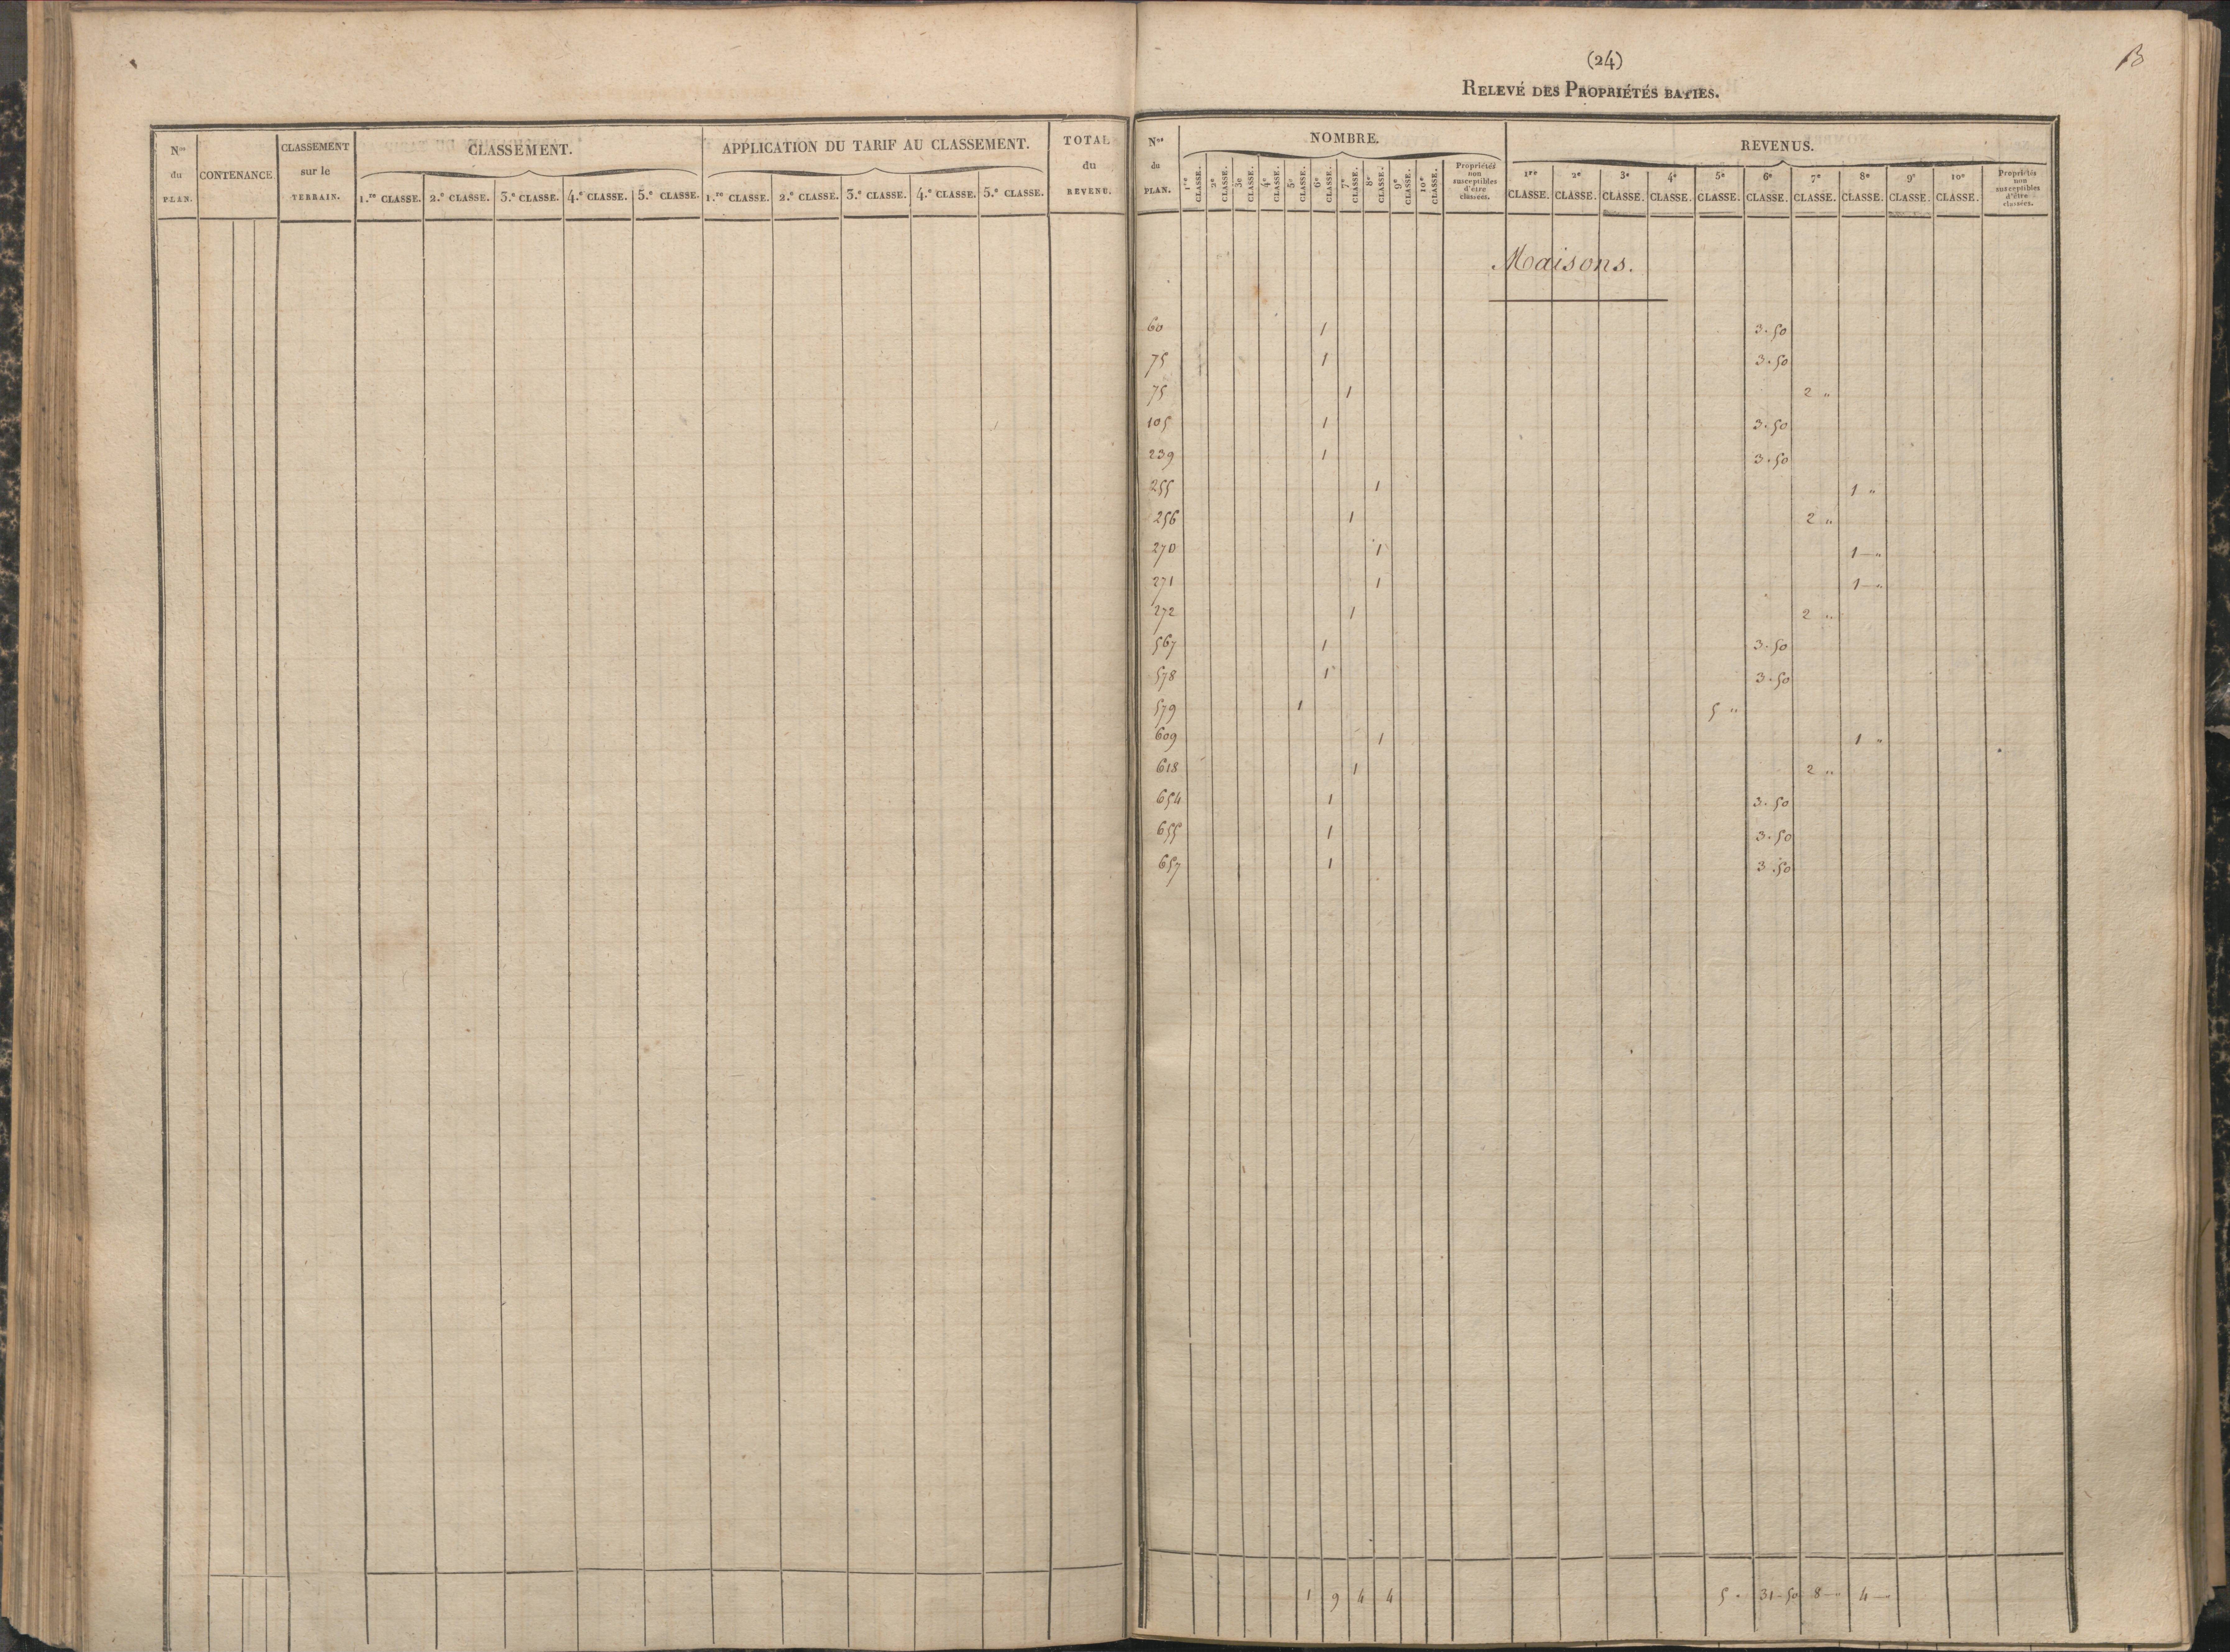 Nos du PLAN.
CONTENANCE
CLASSEMENT sur le TERRAIN.
CLASSEMENT.
1.re CLASSE. 2.e CLASSE. 3.e CLASSE. 4.e CLASSE. 5.e CLASSE.
APPLICATION DU TARIF AU CLASSEMENT.
1.re CLASSE. 2.e CLASSE. 3.e CLASSE. 4.e CLASSE. 5.e CLASSE.
TOTAL du REVENU.
(24)
B
RELEVÉ DES PROPRIÉTÉS BATIES.
Nos du PLAN.
NOMBRE.
1re CLASSE. 2e CLASSE. 3e CLASSE. 4e CLASSE. 5e CLASSE. 6e CLASSE. 7e CLASSE. 8e CLASSE. 9e CLASSE. 10e CLASSE. Propriétés non susceptibles d'être classées.
REVENUS.
1re CLASSE. 2e CLASSE. 3e CLASSE. 4e CLASSE. 5e CLASSE. 6e CLASSE. 7e CLASSE. 8e CLASSE. 9e CLASSE. 10e CLASSE. Propriétés non susceptibles d'être classées.
Maisons.
60 1 3.50
75 1 3.50
75 1 2 "
105 1 3.50
239 1 3.50
255 1 1 "
256 1 2 "
270 1 1 — "
271 1 1 — "
272 1 2 "
567 1 3.50
578 1 3.50
579 1 5 "
609 1 1 "
618 1 2 "
654 1 3.50
655 1 3.50
657 1 3.50
1 9 4 4 5 " 31-50 8 — " 4 —